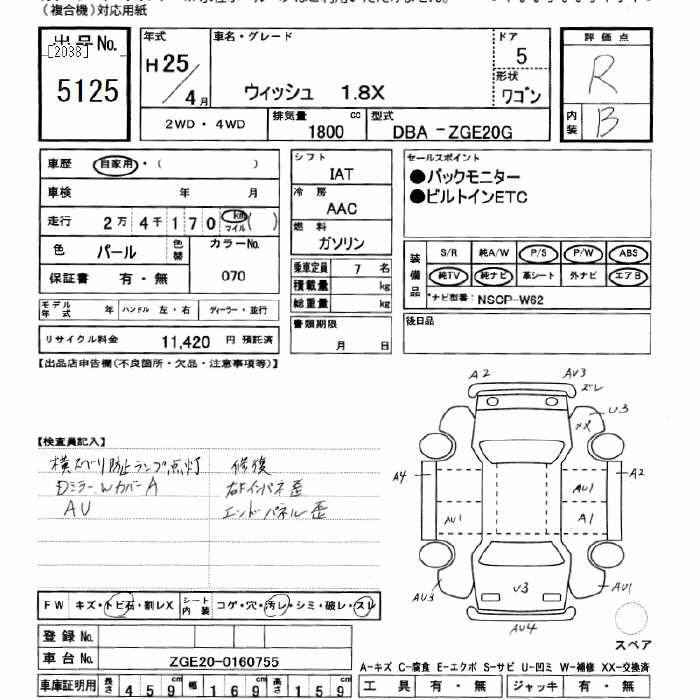 （複合機）対応用紙
出品No.
[2038]
5125
年式
H25/4月
車名・グレード
ウィッシュ 1.8X
ドア
5
形状
ワゴン
評価点
R
内装
B
2WD・4WD
排気量
1800 cc
型式
DBA -ZGE20G
車歴 自家用・( )
車検 年 月
走行 2万4千170 km マイル ( )
色 パール 色替
カラーNo.
070
保証書 有・無
モデル年式 年 ハンドル 左・右 ディーラー・並行
リサイクル料金 11,420 円 預託済
シフト
IAT
冷房
AAC
燃料
ガソリン
乗車定員 7 名
積載量 kg
総重量 kg
書類期限
月 日
セールスポイント
●バックモニター
●ビルトインETC
装備品
S/R 純A/W P/S P/W ABS
純TV 純ナビ 革シート 外ナビ エアB
*ナビ型番: NSCP-W62
後日品
【出品店申告欄(不良箇所・欠品・注意事項等)】
【検査員記入】
横スベリ防止ランプ点灯
DミラーWカバーA
AU
修復
右下インパネ歪
エンドパネル歪
A2
AU3
ズレ
U3
XX
A4
A2
AU1
AU1
A1
AU3
U3
AU1
AU4
スペア
FW キズ・トビ石・割レX
シート内装 コゲ・穴・汚レ・シミ・破レ・スレ
登録No.
車台No. ZGE20-0160755
車庫証明用 長さ 459cm 幅 169cm 高さ 159cm
A-キズ C-腐食 E-エクボ S-サビ U-凹ミ W-補修 XX-交換済
工具 有・無 ジャッキ 有・無